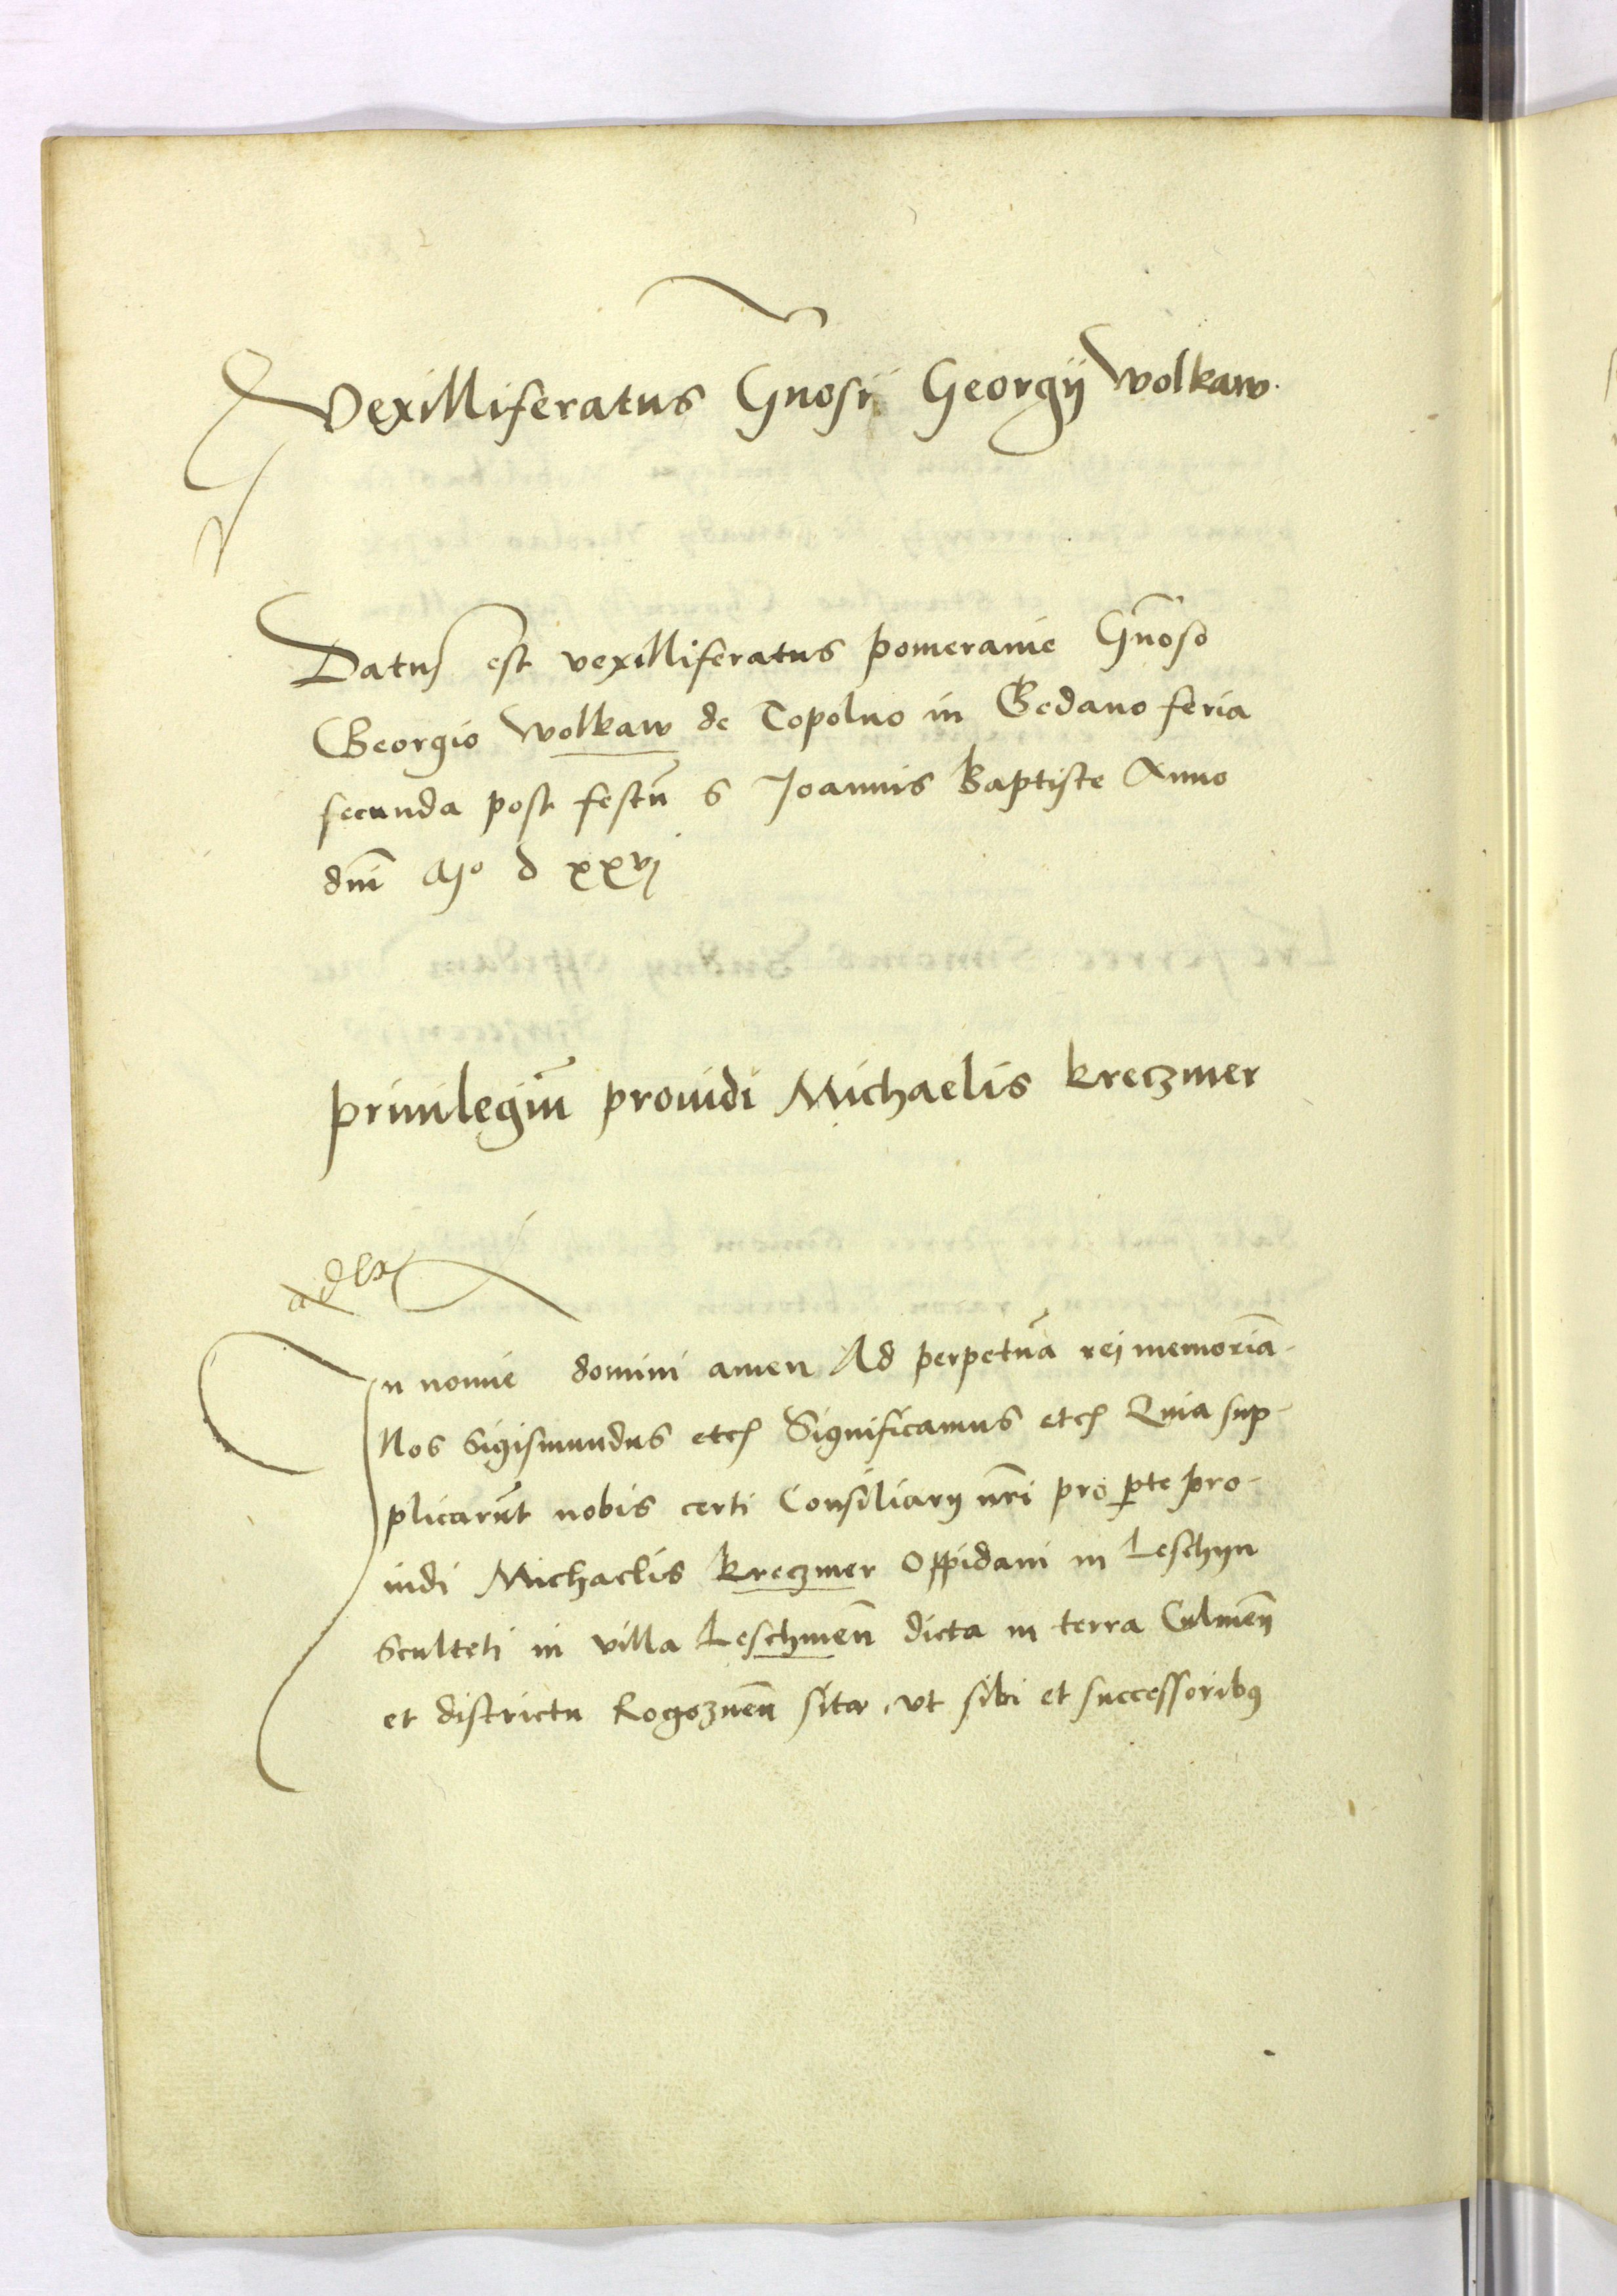 Vexilliferatus Gn̄osi Georgij Wolkaw.
Datus est vexilliferatus pomeranie Gn̄oso
Georgio Wolkaw de Topolno in Gedano feria
secunda post festū S Joannis Baptiste Anno
dnī Mº d xxvj
priuilegiū prouidi Michaelis kreczmer
In nomīe domini amen Ad perpetuā rej memoriā
Nos Sigismundus etc Significamus etc Quia sup-
plicarūt nobis certi Consiliarij nr̄i pro p̱te pro-
uidi Michaelis kreczmer Oppidani in Leschyn
Sculteti in villa Leschmen̄ dicta in terra Culmen̄
et districtu Rogoznen̄ sita, vt sibi et successoribꝰ